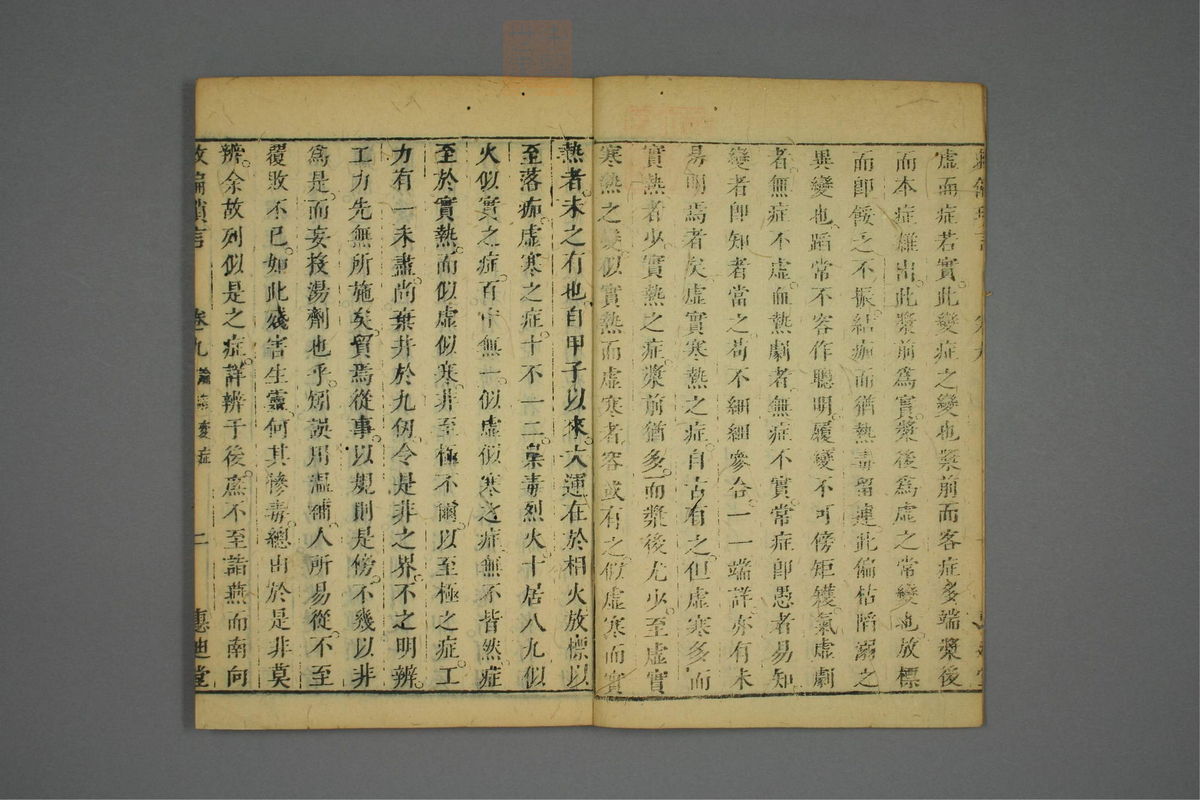 虛而症若實此變症之變也漿前而客症多端漿後
而本症雄出此漿前爲實漿後爲虛之常變也放標
而卽餒乏不振結痂而猶熱毒留連此偏枯陷溺之
異變也蹈常不容作聰明履變不可傍矩矱氣虛劇
者無症不虛血熱劇者無症不實常症卽愚者易知
變者卽知者當之苟不細細參合一一端詳亦有未
易明焉者矣虛實寒熱之症自古有之但虛寒多而
實熱者少實熱之症漿前猶多而漿後尤少至虛實
寒熱之變似實熱而虛寒者容或有之似虛寒而實
熱者未之有也自甲子以來大運在於相火放標以
至落痂虛寒之症十不一二藁毒烈火十居八九似
火似實之症百中無一似虛似寒之症無不皆然症
至於實熱而似虛似寒非至極不爾以至極之症工
力有一未盡尚棄井於九仞令是非之界不之明辨
工力先無所施矣貿焉從事以規則是傍不幾以非
爲是而妄投湯劑也乎矧誤用溫補人所易從不至
覆敗不已如此殘害生靈何其慘毒總由於是非莫
辨余故列似是之症詳辨于後爲不至詣燕而南向
救偏瑣言 卷九 變症 二 惠迪堂